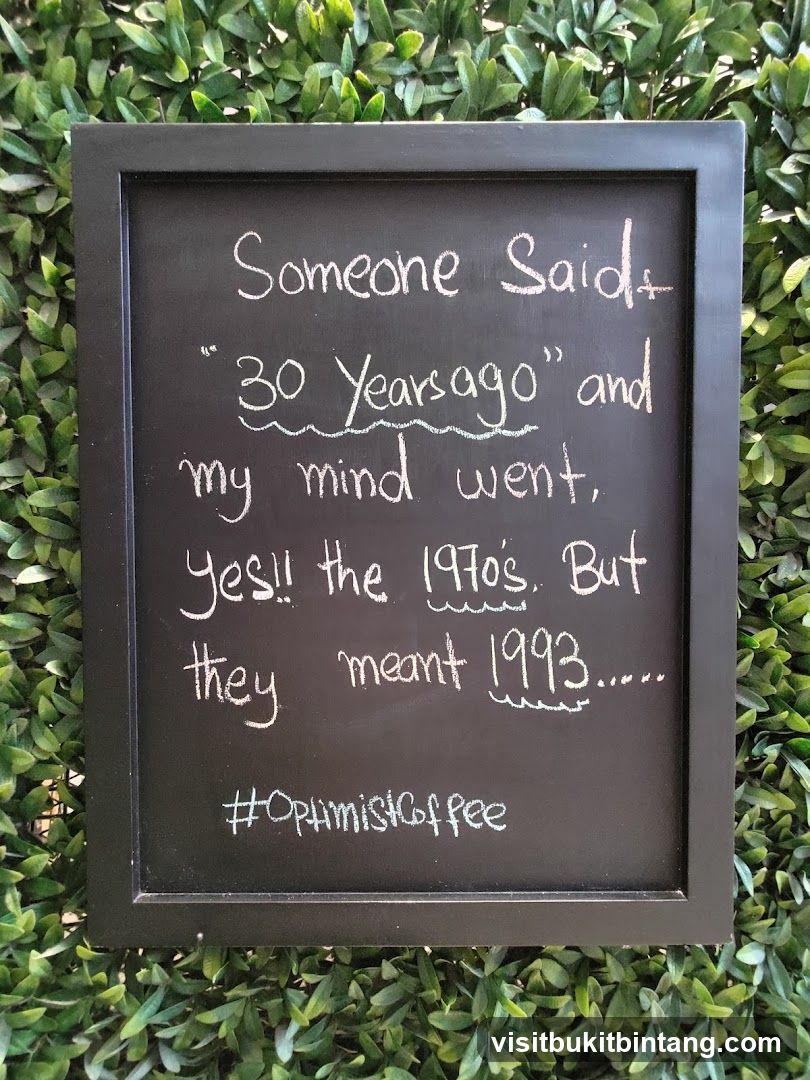 Someone Said,
"30 Years ago" and
my mind went,
yes!! the 1970's. But
they meant 1993.....
#OptimistCoffee
visitbukitbintang.com